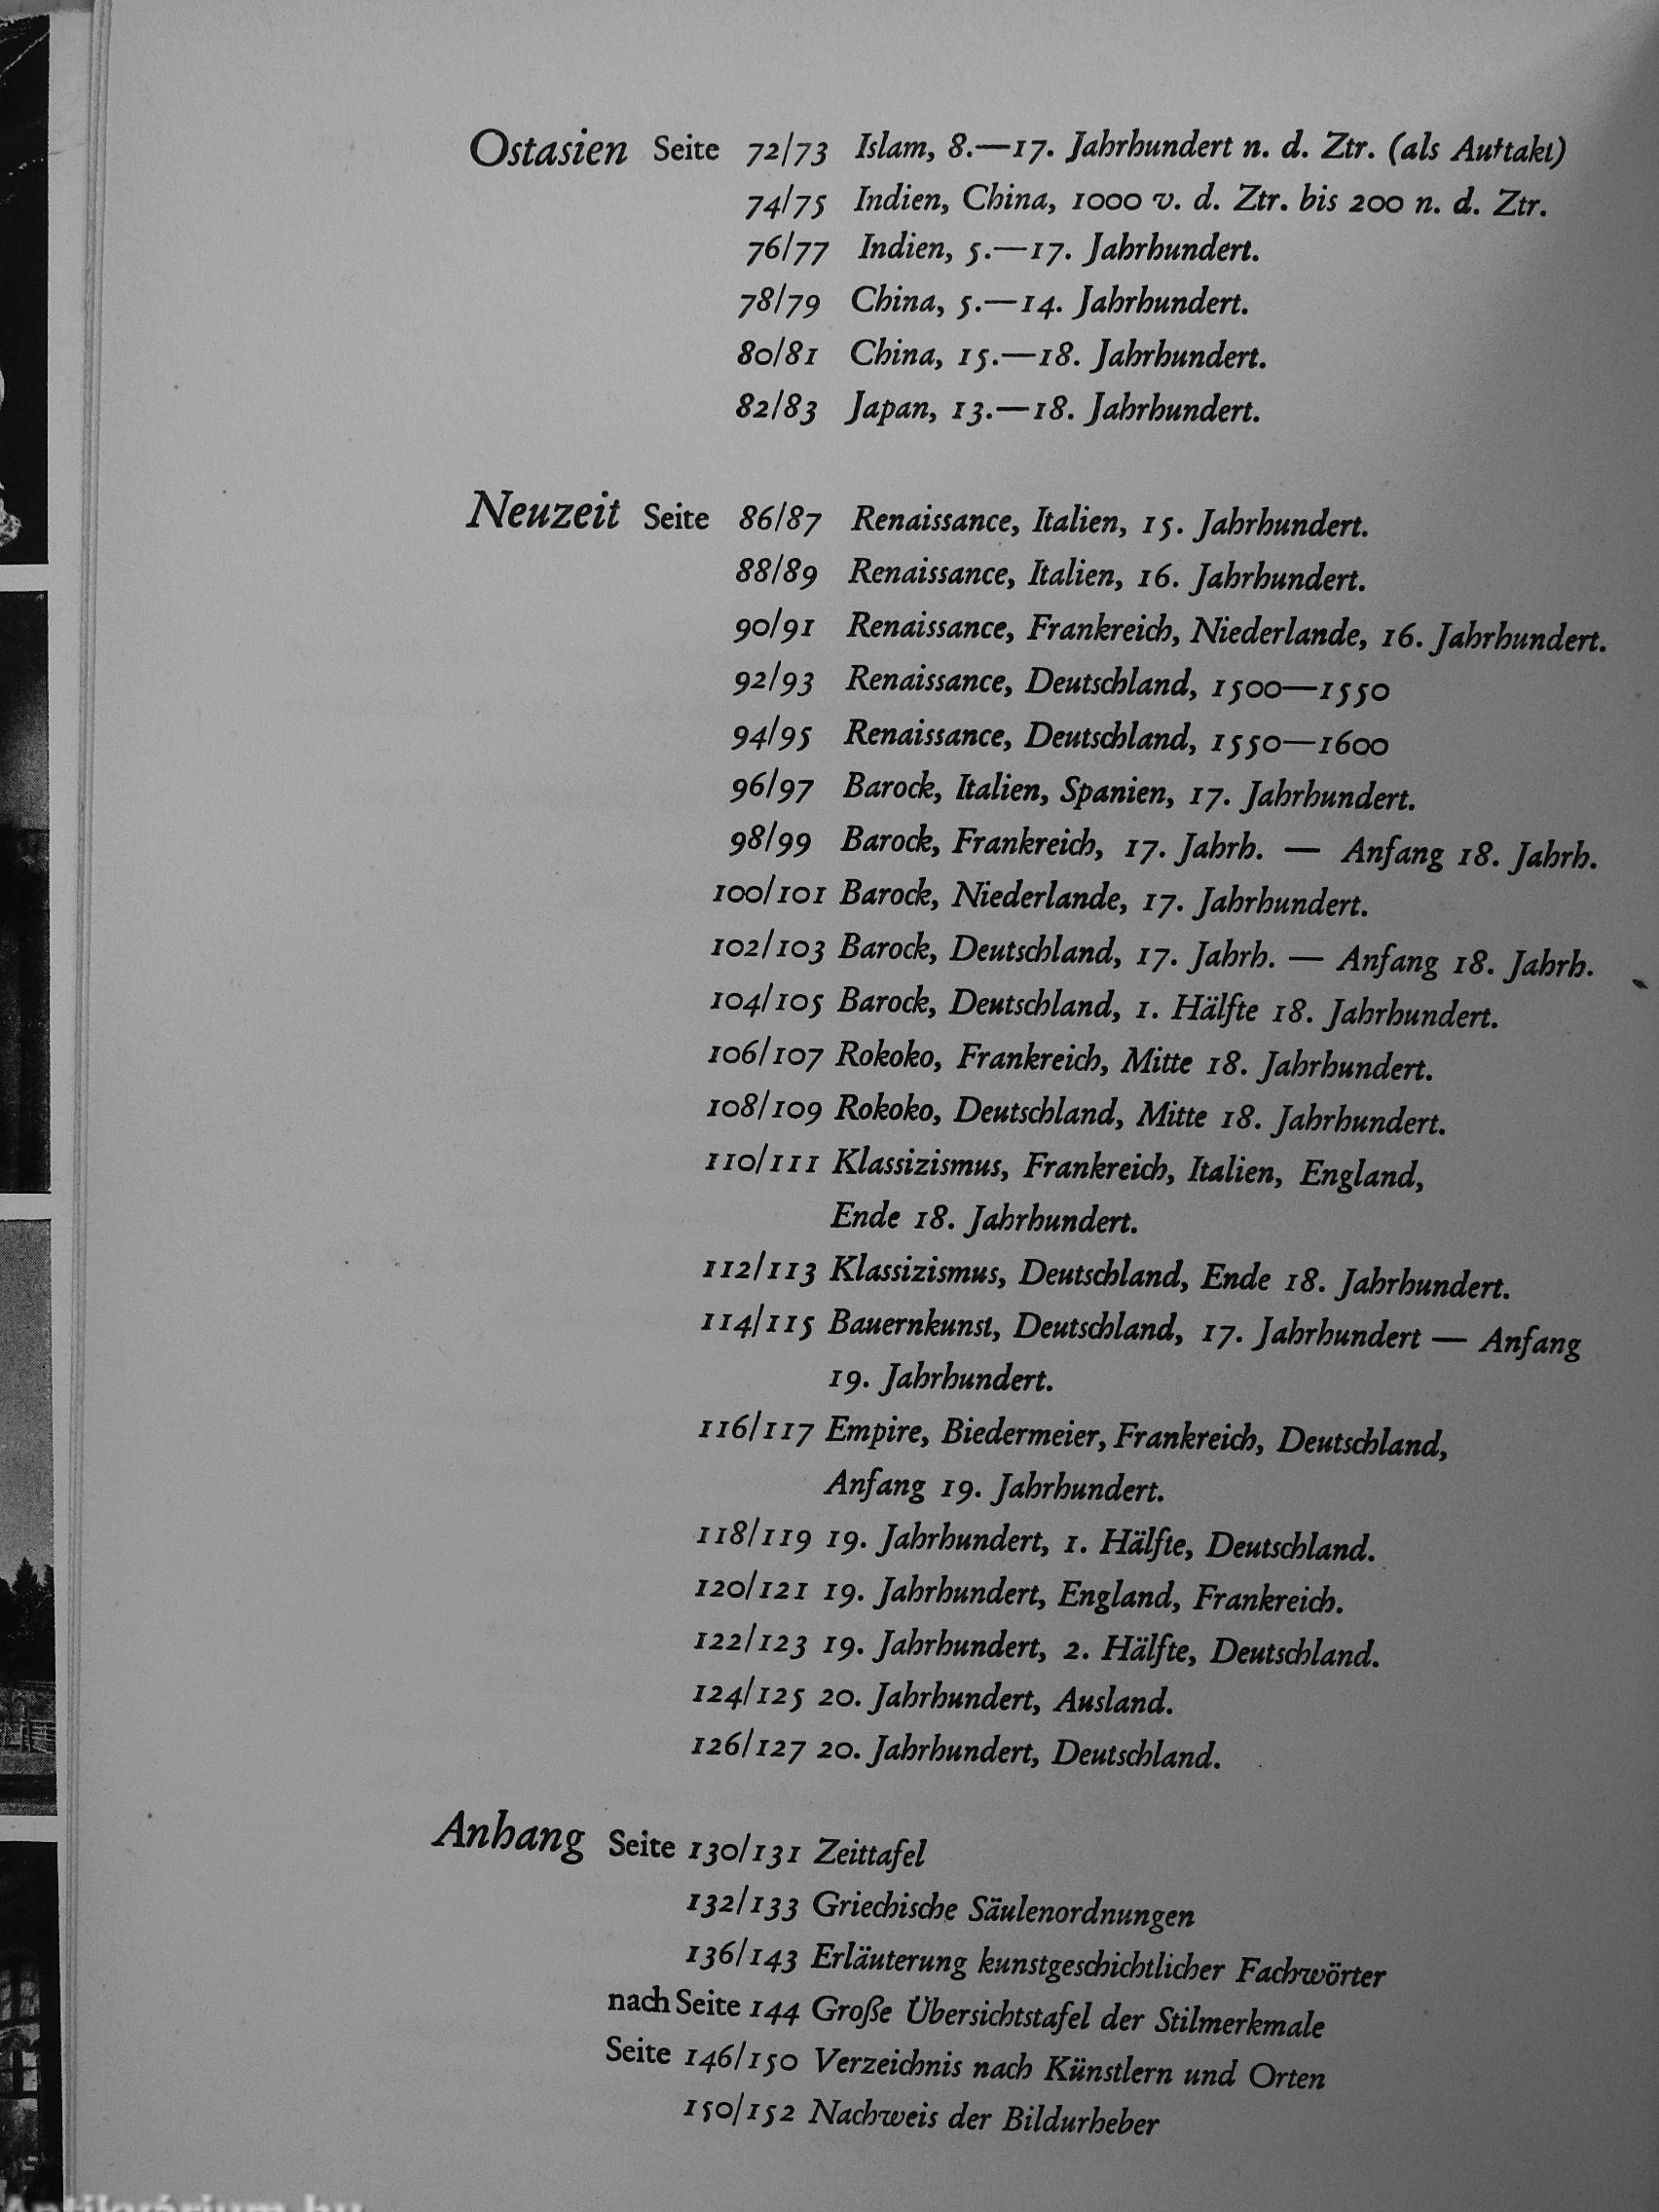 Ostasien Seite 72/73 Islam, 8.—17. Jahrhundert n. d. Ztr. (als Auftakt)
74/75 Indien, China, 1000 v. d. Ztr. bis 200 n. d. Ztr.
76/77 Indien, 5.—17. Jahrhundert.
78/79 China, 5.—14. Jahrhundert.
80/81 China, 15.—18. Jahrhundert.
82/83 Japan, 13.—18. Jahrhundert.
Neuzeit Seite 86/87 Renaissance, Italien, 15. Jahrhundert.
88/89 Renaissance, Italien, 16. Jahrhundert.
90/91 Renaissance, Frankreich, Niederlande, 16. Jahrhundert.
92/93 Renaissance, Deutschland, 1500—1550
94/95 Renaissance, Deutschland, 1550—1600
96/97 Barock, Italien, Spanien, 17. Jahrhundert.
98/99 Barock, Frankreich, 17. Jahrh. — Anfang 18. Jahrh.
100/101 Barock, Niederlande, 17. Jahrhundert.
102/103 Barock, Deutschland, 17. Jahrh. — Anfang 18. Jahrh.
104/105 Barock, Deutschland, 1. Hälfte 18. Jahrhundert.
106/107 Rokoko, Frankreich, Mitte 18. Jahrhundert.
108/109 Rokoko, Deutschland, Mitte 18. Jahrhundert.
110/111 Klassizismus, Frankreich, Italien, England,
Ende 18. Jahrhundert.
112/113 Klassizismus, Deutschland, Ende 18. Jahrhundert.
114/115 Bauernkunst, Deutschland, 17. Jahrhundert — Anfang
19. Jahrhundert.
116/117 Empire, Biedermeier, Frankreich, Deutschland,
Anfang 19. Jahrhundert.
118/119 19. Jahrhundert, 1. Hälfte, Deutschland.
120/121 19. Jahrhundert, England, Frankreich.
122/123 19. Jahrhundert, 2. Hälfte, Deutschland.
124/125 20. Jahrhundert, Ausland.
126/127 20. Jahrhundert, Deutschland.
Anhang Seite 130/131 Zeittafel
132/133 Griechische Säulenordnungen
136/143 Erläuterung kunstgeschichtlicher Fachwörter
nach Seite 144 Große Übersichtstafel der Stilmerkmale
Seite 146/150 Verzeichnis nach Künstlern und Orten
150/152 Nachweis der Bildurheber
Antikvárium.hu